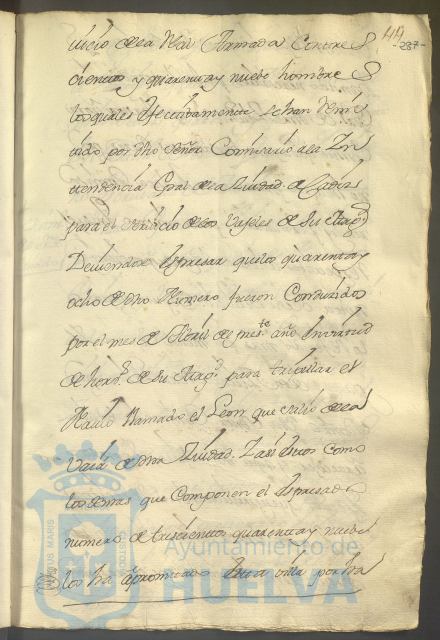 44
-287-
vicio de la Real Armada
cientos y quarenta y nuebe hombres
los quales efectibamente se han remi
tido por dho Señor Comisario a la In
tendencia Gral de la Ziudad de Cadiz
para el servicio de los Vageles de Su Magd
Deviendose Espresar que los quarenta y
ocho de dho Numero fueron Conduzidos
por el mes de Abril de preste año En virtud
de horn. de Su Magd. para tripular el
Navio llamado el Leon que salio de la
Vaia de dha Ziudad. Y assi estos como
los demas que Componen el Espresado
numero de trescientos quarenta y nuebe
los ha apromtado esta villa por ha
AQUIS MARIS
CUSTODIA
Ayuntamiento de
HUELVA